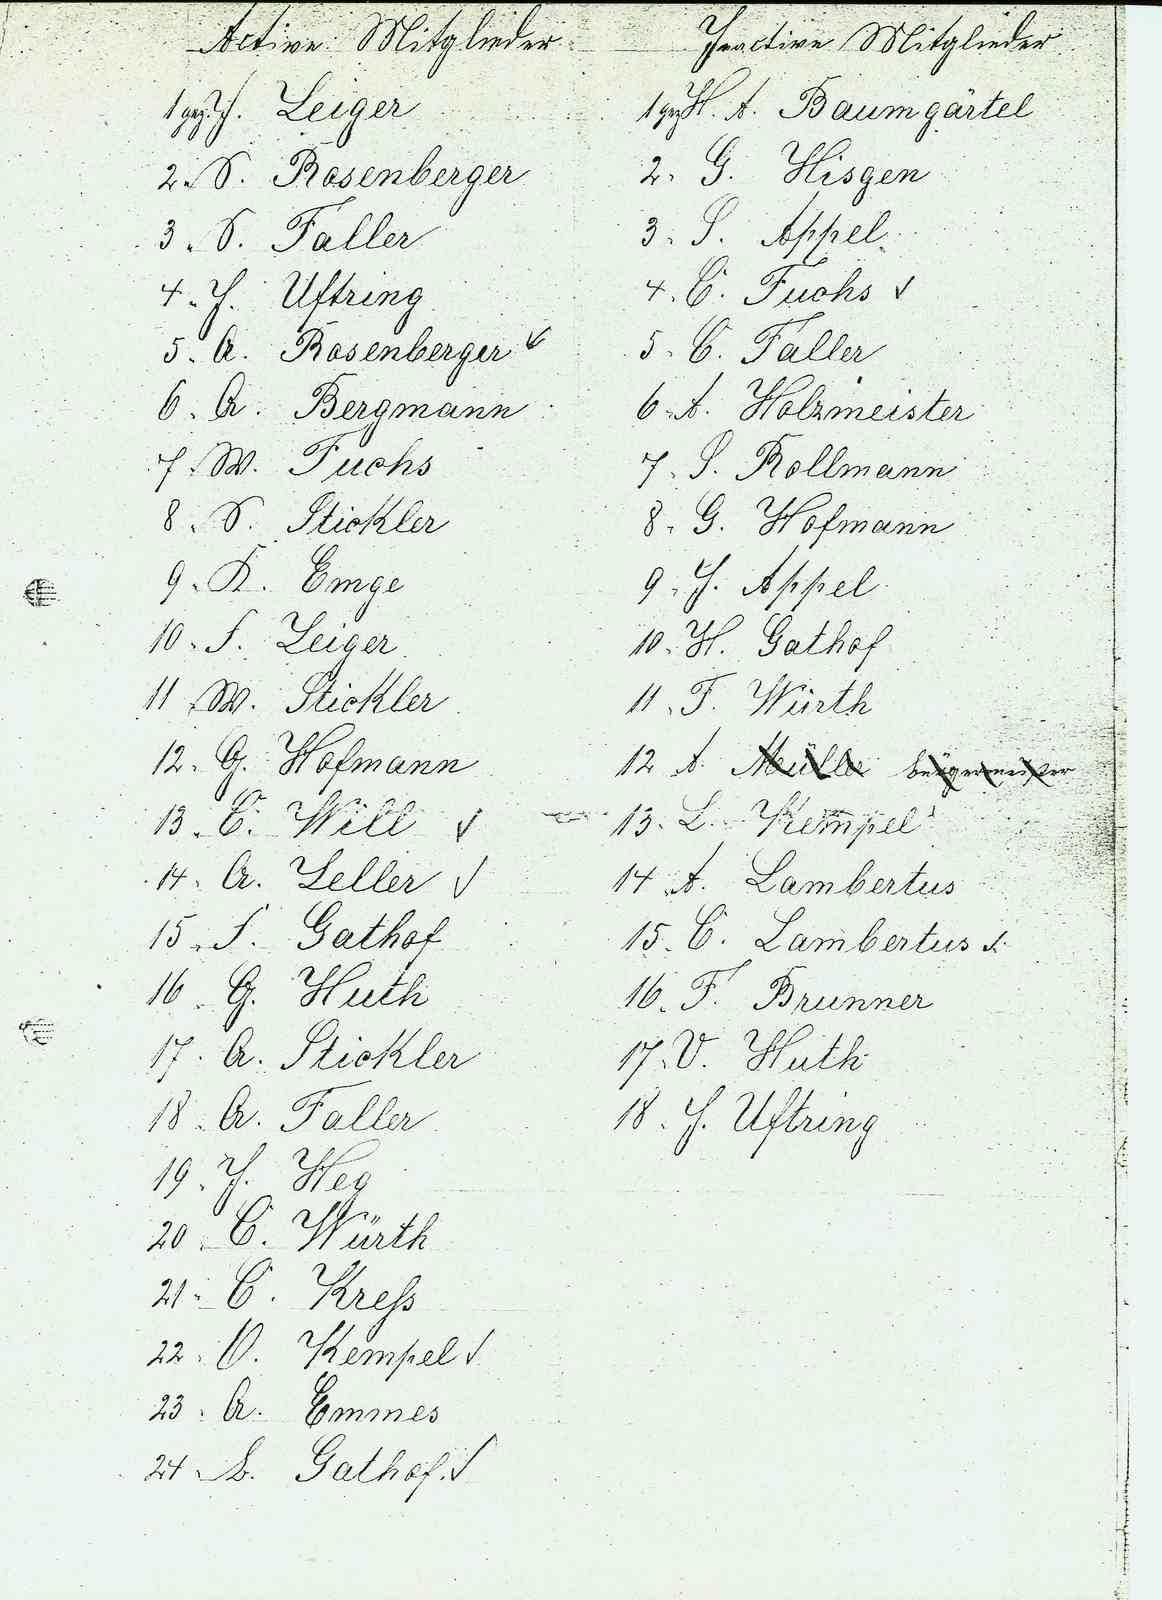 Active Mitglieder
1 gez. J. Leiger
2. S. Rosenberger
3. S. Faller
4. J. Uftring
5. A. Rosenberger ✓
6. A. Bergmann
7. W. Fuchs
8. S. Stickler
9. K. Emge
10. F. Leiger
11. W. Stickler
12. G. Hofmann
13. C. Will ✓
14. A. Zeller ✓
15. F. Gathof
16. G. Huth
17. A. Stickler
18. A. Faller
19. J. Heg
20. C. Würth
21. C. Kreſs
22. O. Kempel ✓
23. A. Emmes
24. L. Gathof. ✓
Inactive Mitglieder
1 gez. H. A. Baumgärtel
2. G. Hisgen
3. S. Appel
4. C. Fuchs ✓
5. C. Faller
6. A. Holzmeister
7. S. Rollmann
8. G. Hofmann
9. J. Appel
10. H. Gathof
11. F. Würth
12 A. Müller bürgermeister
13. L. Kempel
14 A. Lambertus
15. C. Lambertus ✓
16. F. Brunner
17. V. Huth
18. J. Uftring